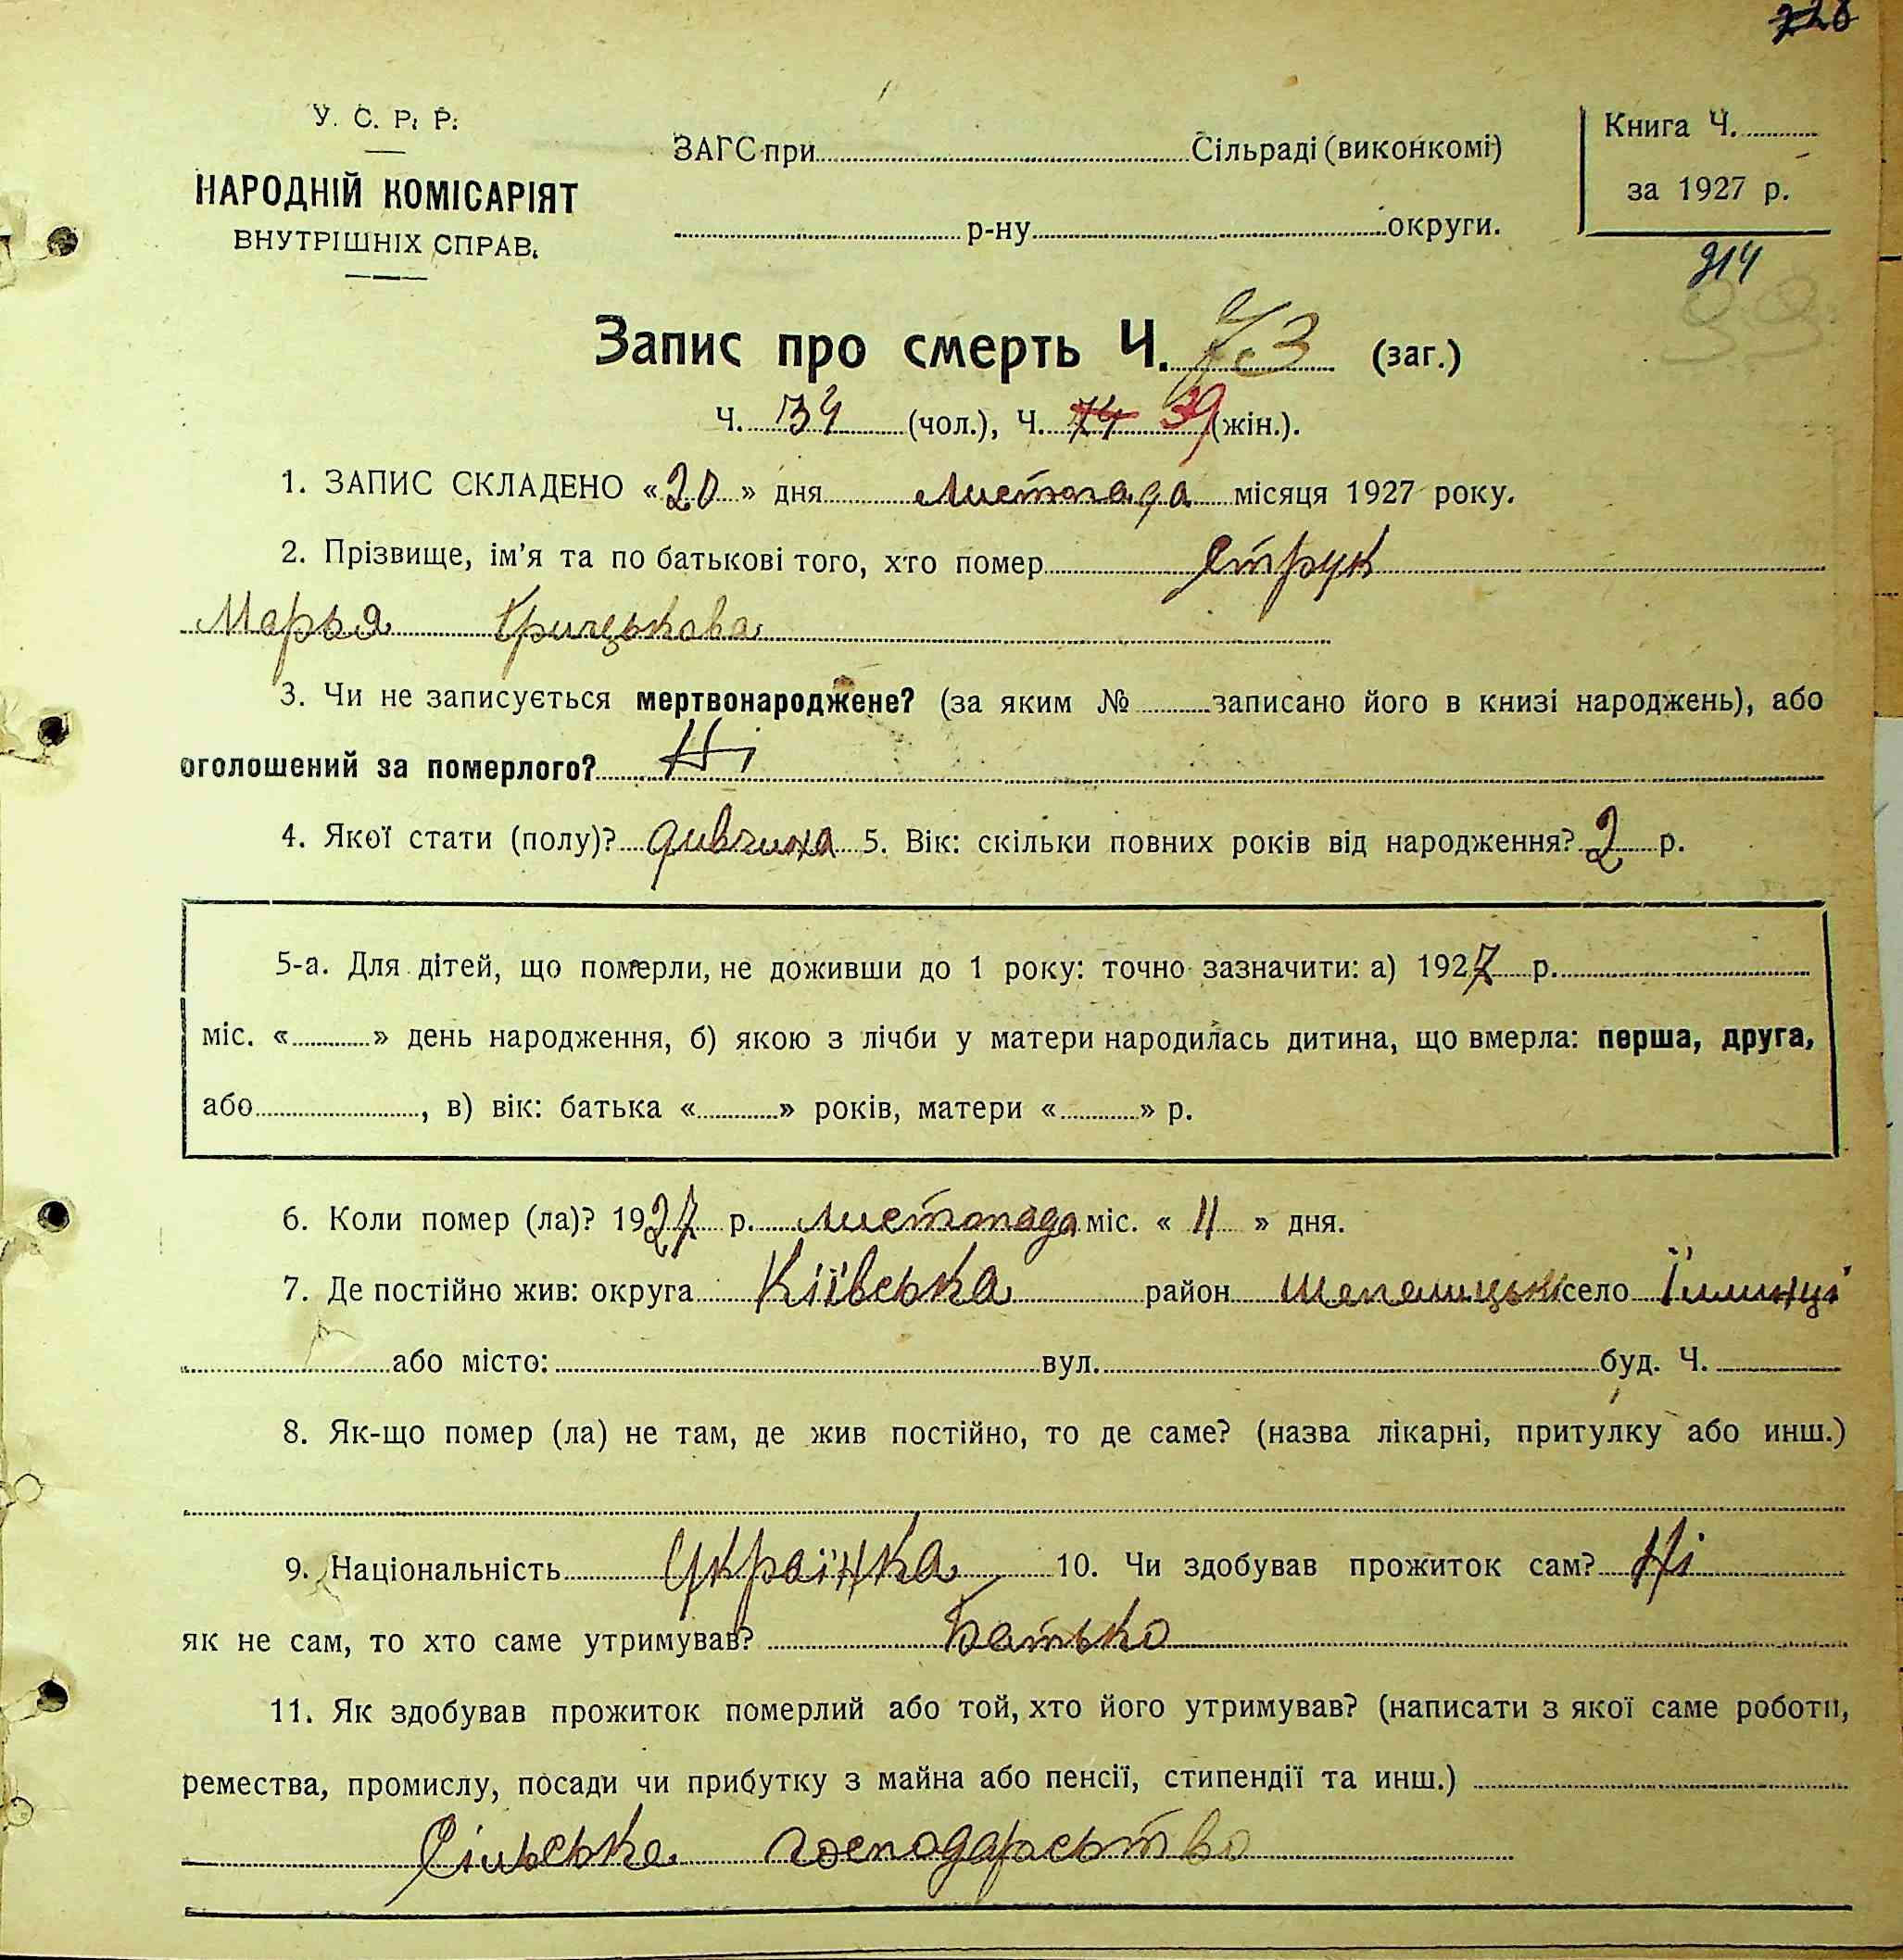 728
У. С. Р. Р.
НАРОДНІЙ КОМІСАРІЯТ
ВНУТРІШНІХ СПРАВ.
ЗАГС при Сільраді (виконкомі)
р-ну округи.
Книга Ч.
за 1927 р.
914
99
Запис про смерть Ч. 73 (заг.)
Ч. 34 (чол.), Ч. 74 39 (жін.).
1. ЗАПИС СКЛАДЕНО «20» дня листопада місяця 1927 року.
2. Прізвище, ім'я та по батькові того, хто помер Струк
Марья Грицькова
3. Чи не записується мертвонароджене? (за яким № записано його в книзі народжень), або
оголошений за померлого? Ні
4. Якої стати (полу)? дивчина 5. Вік: скільки повних років від народження? 2 р.
5-а. Для дітей, що померли, не доживши до 1 року: точно зазначити: а) 1927 р.
міс. « » день народження, б) якою з лічби у матери народилась дитина, що вмерла: перша, друга,
або , в) вік: батька « » років, матери « » р.
6. Коли помер (ла)? 1927 р. листопада міс. « 11 » дня.
7. Де постійно жив: округа Київська район Шепелицьк село Їлинці
або місто: вул. буд. Ч.
8. Як-що помер (ла) не там, де жив постійно, то де саме? (назва лікарні, притулку або инш.)
9. Національність Українка 10. Чи здобував прожиток сам? Ні
як не сам, то хто саме утримував? Батько
11. Як здобував прожиток померлий або той, хто його утримував? (написати з якої саме роботи,
ремества, промислу, посади чи прибутку з майна або пенсії, стипендії та инш.)
Сільське господарство